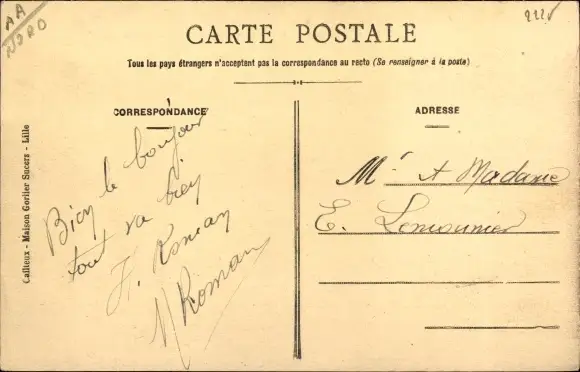 AA
NORD
2225
CARTE POSTALE
Tous les pays étrangers n'acceptent pas la correspondance au recto (Se renseigner à la poste)
CORRESPONDANCE
Bien le bonjour
tout va bien
F. Roman
N Roman
ADRESSE
Mr et Madame
E. Lemounier
Cailteux - Maison Gorlier Succrs - Lille